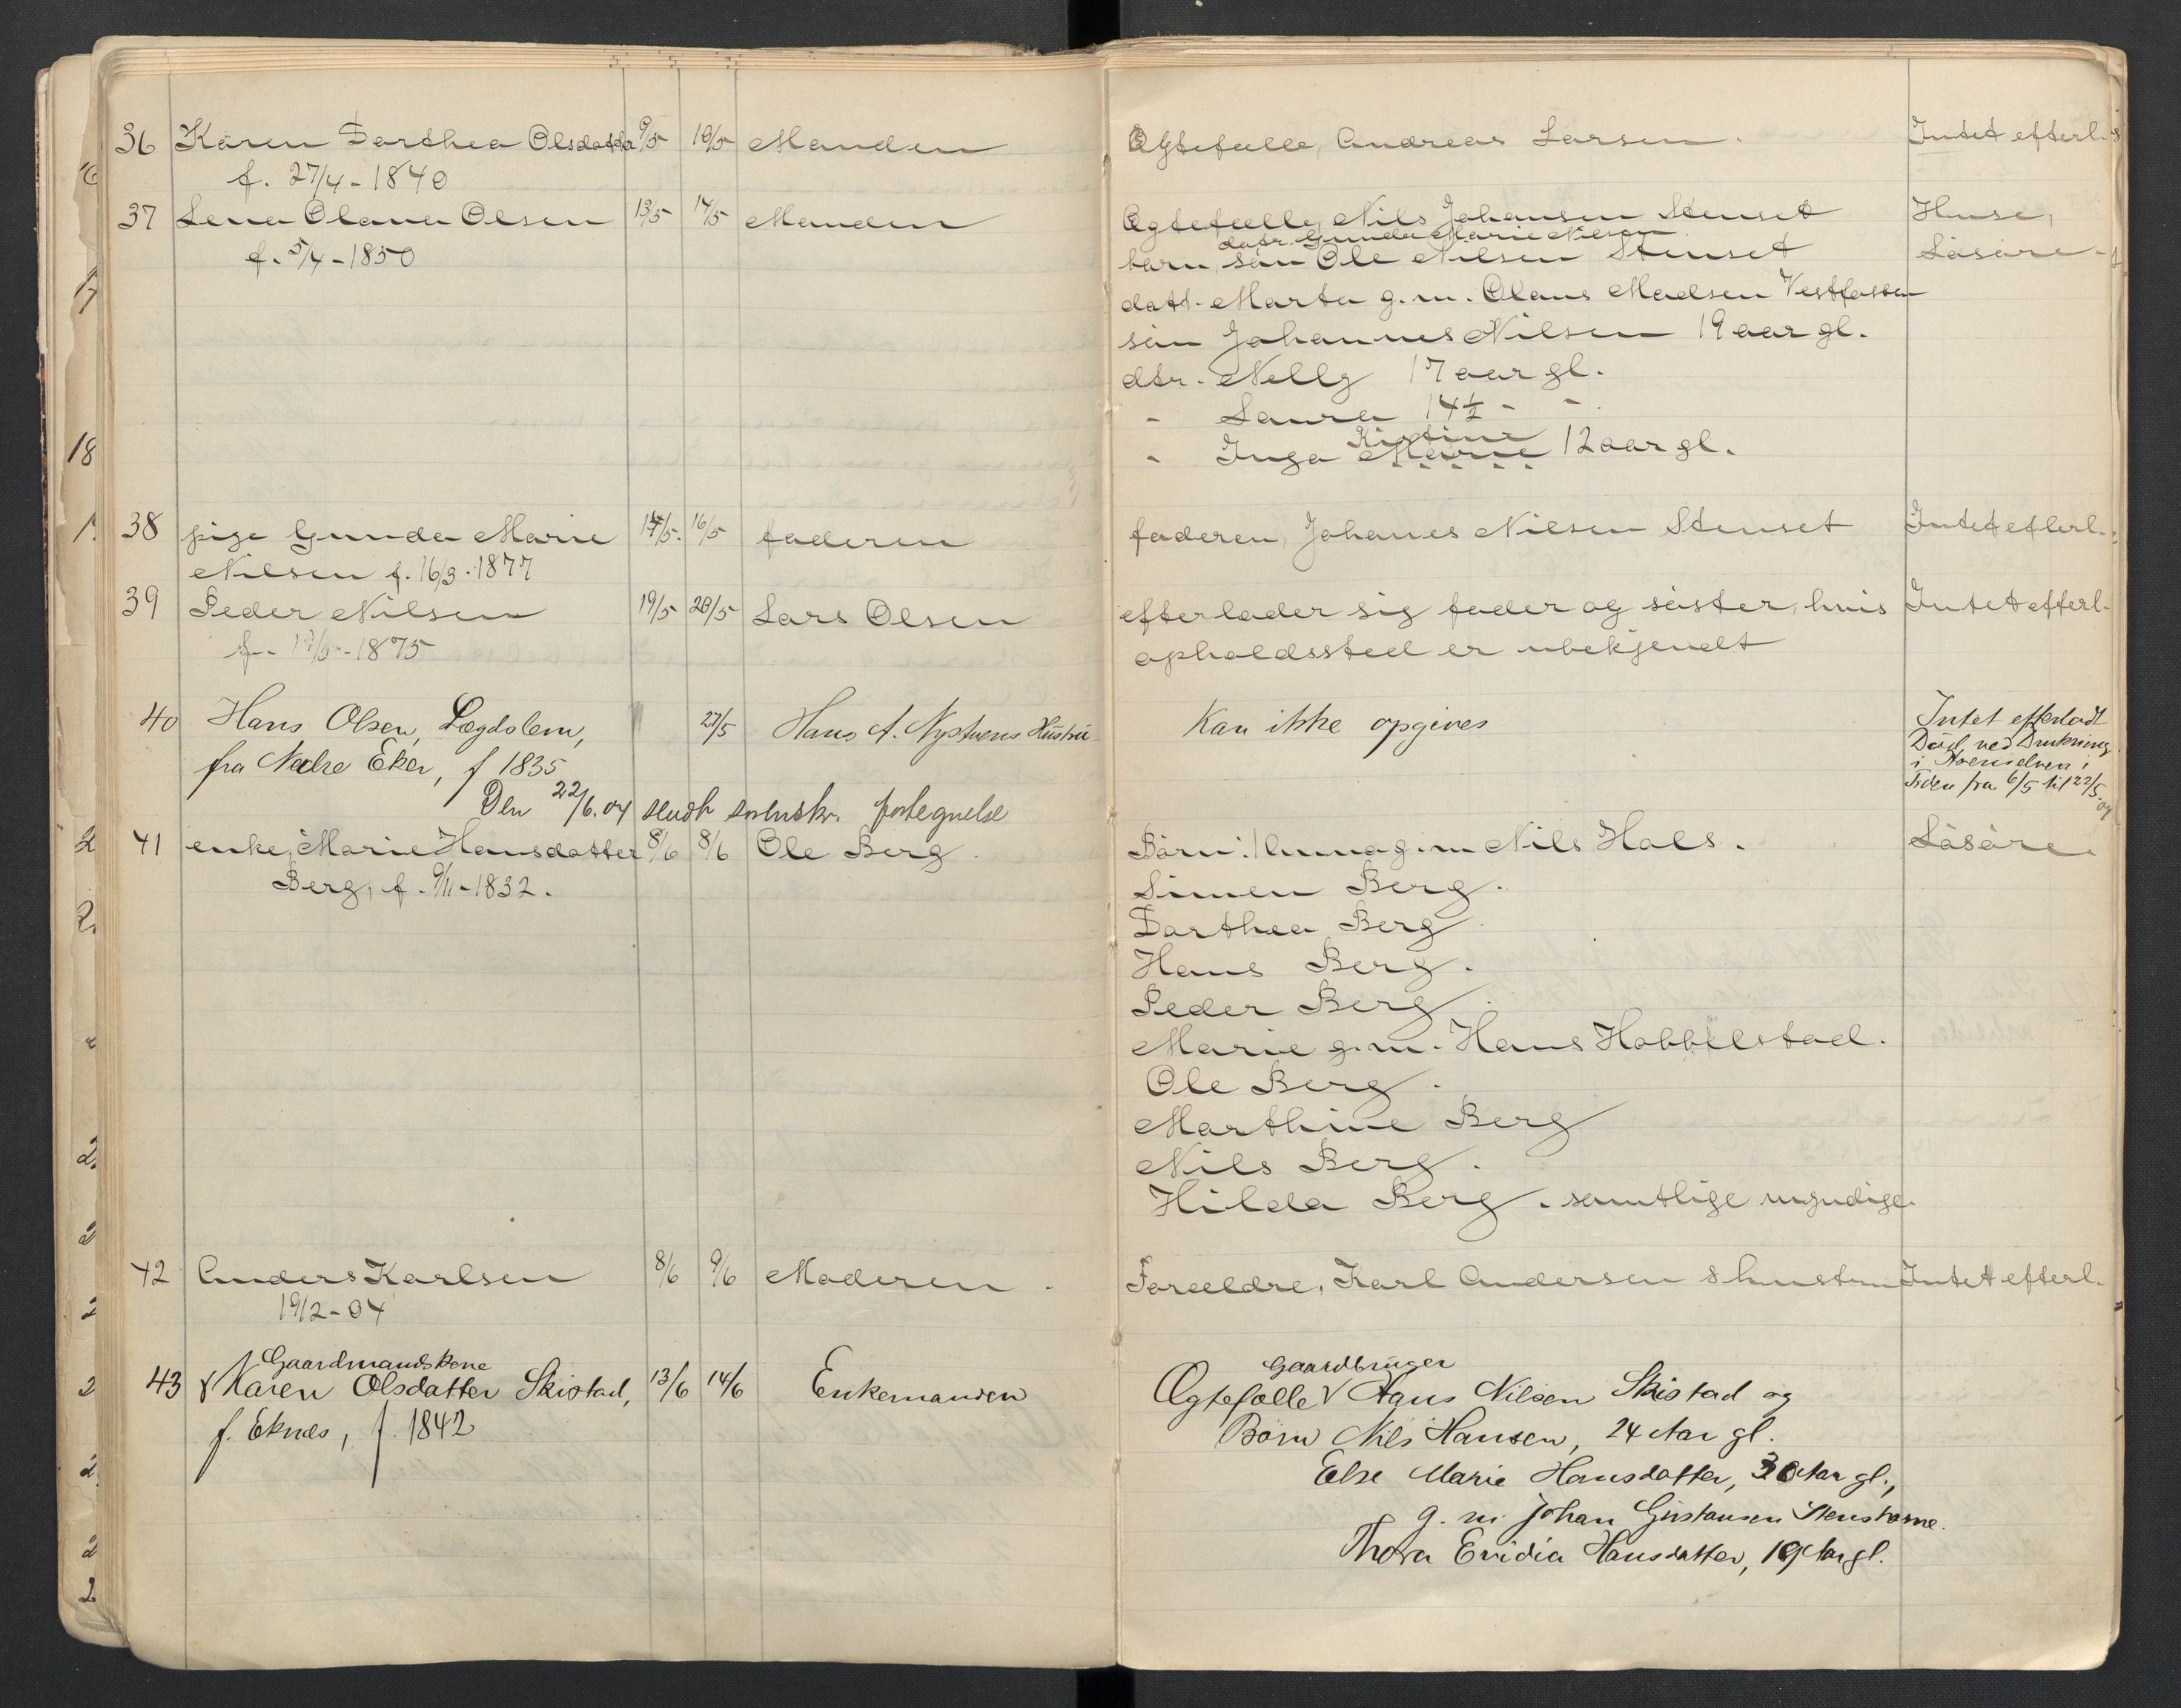 36 Karen Dorthea Olsdatter 9/5 10/5 Manden Ægtefælle, Andreas Larsen. Intet efterl.
f. 27/4 - 1840
37 Lena Olava Olsen 13/5 14/5 Manden Ægtefælle, Nils Johansen Stenset Huse,
datr. Gunda Marie Nilsen
f. 5/4 - 1850 børn, søn Ole Nilsen Stenset Løsøre
datt. Marta g. m. Olaus Madsen Vestfossen
søn Johannes Nilsen 19 aar gl.
dtr. Nelly 17 aar gl.
- Laura 14½ - -
Kirstine
- Inga Marie 12 aar gl.
38 pige Gunda Marie 14/5. 16/5 faderen faderen, Johanes Nilsen Stenset Intet efterl.
Nilsen f. 16/3 - 1877
39 Peder Nilsen 19/5 20/5 Lars Olsen efterlader sig fader og søster, hvis Intet efterl.
f. - 1875 opholdssted er ubekjendt
40 Hans Olsen, Lægdslem, 27/5 Hans A. Nystuens Hustru Kan ikke opgives Intet efterladt
fra Nedre Eker, f 1835 Død ved Drukning
i Hoenselven i
Tiden fra 6/5 til 22/5 04
Den 22/6. 04 sendt fortegnelse
41 enke, Marie Hansdatter 8/6 8/6 Ole Berg Børn: Anna g. m Nils Hals. Løsøre
Berg, f. 9/11 - 1832. Simen Berg.
Dorthea Berg
Hans Berg.
Peder Berg.
Marie g. m. Hans Hobbelstad.
Ole Berg.
Marthine Berg
Nils Berg.
Hilda Berg. samtlige myndige.
42 Anders Karlsen 8/6 9/6 Moderen. Forældre, Karl Andersen & hustru Intet efterl.
19/2 - 04
Gaardmandskone Gaardbruger
43 Karen Olsdatter Skistad, 13/6 14/6 Enkemanden Ægtefælle Hans Nilsen Skistad og
f. Eknes, f. 1842 Børn Nils Hansen, 24 Aar gl.
Else Marie Hansdatter, 30 Aar gl.,
g. m. Johan Gustausen
Thora Evidia Hansdatter, 19 Aar gl.